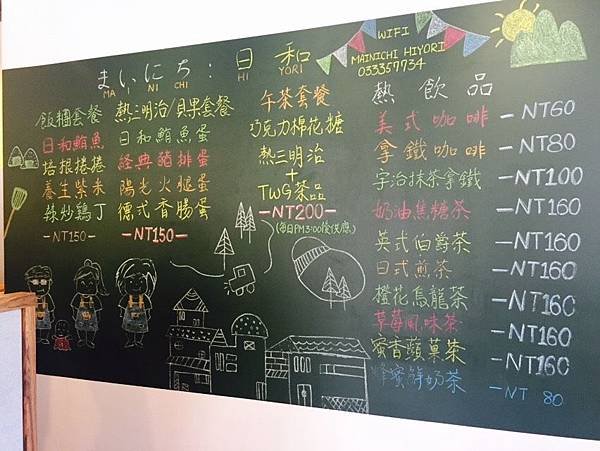 まいにち:日和
MA I NI CHI HI YORI
WIFI
MAINICHI HIYORI
033357734
飯糰套餐
日和鮪魚
培根捲捲
養生紫米
辣炒鷄丁
-NT150-
熱三明治/貝果套餐
日和鮪魚蛋
經典豬排蛋
陽光火腿蛋
德式香腸蛋
-NT150-
午茶套餐
巧克力棉花糖
熱三明治
+
TWG茶品
-NT200-
(每日PM3:00後供應)
熱飲品
美式咖啡 -NT60
拿鐵咖啡 -NT80
宇治抹茶拿鐵 -NT100
奶油焦糖茶 -NT160
英式伯爵茶 -NT160
日式煎茶 -NT160
橙花烏龍茶 -NT160
草莓風味茶 -NT160
蜜香蘋菓茶 -NT160
蜂蜜鮮奶茶 -NT 80